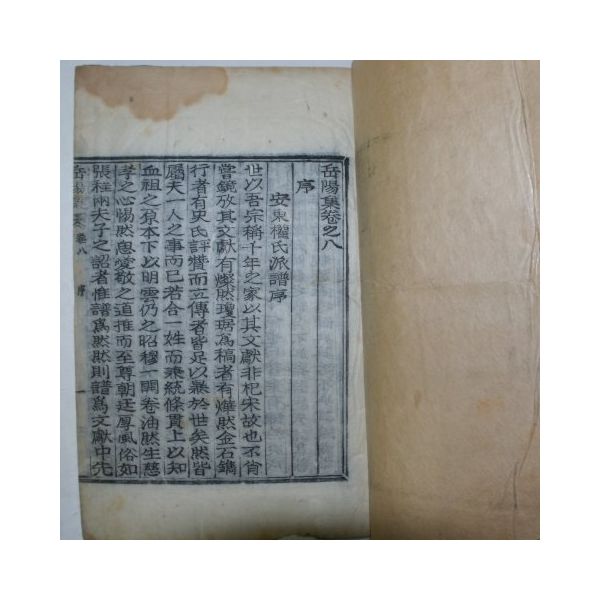 岳陽集卷之八
序
安東權氏派譜序
世以吾宗稱千年之家以其文獻非杞宋故也不肖
嘗鏡攷其文獻有燦然瓊琚爲稿者有燁然金石鐫
行者有史氏評贊而立傳者皆足以乘於世矣然皆
屬夫一人之事而已若合一姓而乘統條貫上以知
血祖之原本下以明雲仍之昭穆一開卷油然生慈
孝之心惕然思愛敬之道推而至尊朝廷厚風俗如
張程兩夫子之詔者惟譜爲然然則譜爲文獻中先
岳陽集 卷八 序 一